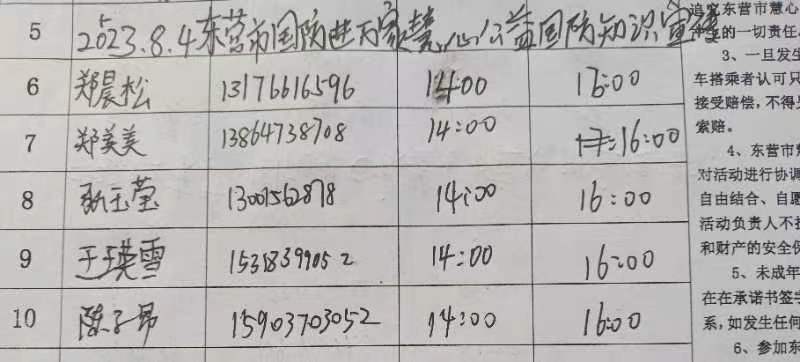 5 2023.8.4东营市国防进万家慧心公益国防知识宣传
6 郑晨松 13176616596 14:00 17:00
7 郑美美 13864738708 14:00 16:00
8 张玉莹 13001562878 14:00 16:00
9 王瑛雪 15318399052 14:00 16:00
10 陈子昂 15903703052 14:00 16:00
追究东营市慧心
的一切责任
3、一旦发生
车搭乘者认可只
接受赔偿，不得
索赔。
4、东营市
对活动进行协调
自由结合、自愿
活动负责人不
和财产的安全
5、未成年
在在承诺书签字
系，如发生任何
6、参加东